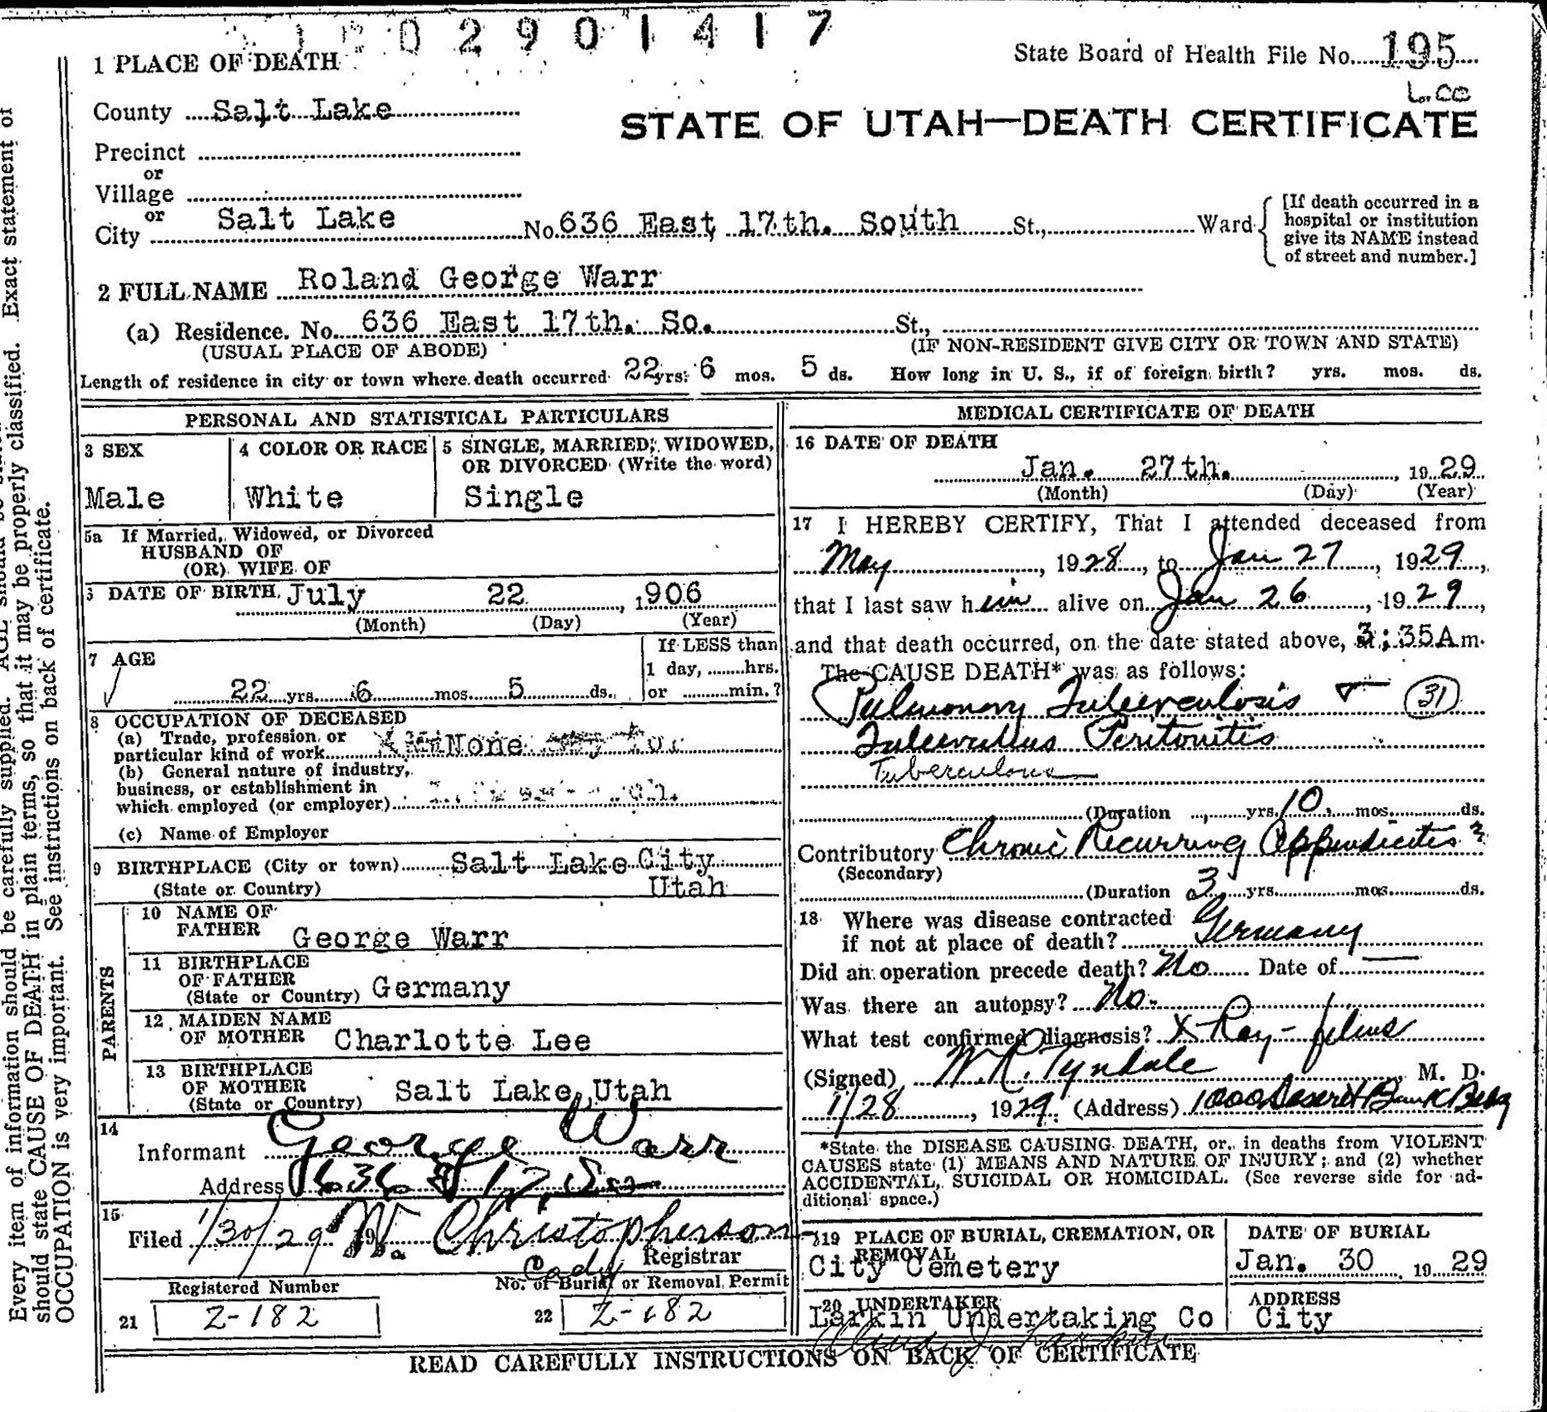 02901417
State Board of Health File No. 195
1 PLACE OF DEATH
County Salt Lake
STATE OF UTAH—DEATH CERTIFICATE
Precinct
or
Village
or
City Salt Lake No. 636 East 17th. South St., Ward
[If death occurred in a
hospital or institution
give its NAME instead
of street and number.]
2 FULL NAME Roland George Warr
(a) Residence. No. 636 East 17th. So. St.,
(USUAL PLACE OF ABODE) (IF NON-RESIDENT GIVE CITY OR TOWN AND STATE)
Length of residence in city or town where death occurred 22 yrs. 6 mos. 5 ds. How long in U. S., if of foreign birth? yrs. mos. ds.
PERSONAL AND STATISTICAL PARTICULARS
3 SEX
Male
4 COLOR OR RACE
White
5 SINGLE, MARRIED, WIDOWED,
OR DIVORCED (Write the word)
Single
5a If Married, Widowed, or Divorced
HUSBAND OF
(OR) WIFE OF
6 DATE OF BIRTH July 22, 1906
(Month) (Day) (Year)
7 AGE
22 yrs 6 mos 5 ds.
If LESS than
1 day, hrs.
or min.?
8 OCCUPATION OF DECEASED
(a) Trade, profession or
particular kind of work None
(b) General nature of industry,
business, or establishment in
which employed (or employer)
(c) Name of Employer
9 BIRTHPLACE (City or town) Salt Lake City
(State or Country) Utah
PARENTS
10 NAME OF
FATHER George Warr
11 BIRTHPLACE
OF FATHER
(State or Country) Germany
12 MAIDEN NAME
OF MOTHER Charlotte Lee
13 BIRTHPLACE
OF MOTHER
(State or Country) Salt Lake, Utah
14
Informant George Warr
Address 636 E 17 So
15
Filed 1/30/29 19 Wm. Christopherson
Registrar
Cody
Registered Number No. of Burial or Removal Permit
21 Z-182 22 Z-182
MEDICAL CERTIFICATE OF DEATH
16 DATE OF DEATH
Jan. 27th. , 1929
(Month) (Day) (Year)
17 I HEREBY CERTIFY, That I attended deceased from
May , 1928, to Jan 27, 1929,
that I last saw him alive on Jan 26, 1929,
and that death occurred, on the date stated above, 3:35A m.
The CAUSE DEATH* was as follows:
Pulmonary Tuberculosis 31
Tuberculus Peritonitis
Tuberculous
(Duration yrs 10 mos ds.
Contributory Chronic Recurring Appendicitis ?
(Secondary)
(Duration 3 yrs mos ds.
18 Where was disease contracted
if not at place of death? Germany
Did an operation precede death? No Date of —
Was there an autopsy? No.
What test confirmed diagnosis? X-Ray-films
(Signed) W R. Tyndale M. D.
1/28, 1929 (Address) 1000 Deseret Bank Bldg
*State the DISEASE CAUSING DEATH, or in deaths from VIOLENT
CAUSES state (1) MEANS AND NATURE OF INJURY; and (2) whether
ACCIDENTAL, SUICIDAL OR HOMICIDAL. (See reverse side for ad-
ditional space.)
19 PLACE OF BURIAL, CREMATION, OR
REMOVAL
City Cemetery
DATE OF BURIAL
Jan. 30 1929
20 UNDERTAKER
Larkin Undertaking Co
ADDRESS
City
READ CAREFULLY INSTRUCTIONS ON BACK OF CERTIFICATE
Every item of information should be carefully supplied. AGE should be Exact statement of
should state CAUSE OF DEATH in plain terms, so that it may be properly classified.
OCCUPATION is very important. See instructions on back of certificate.